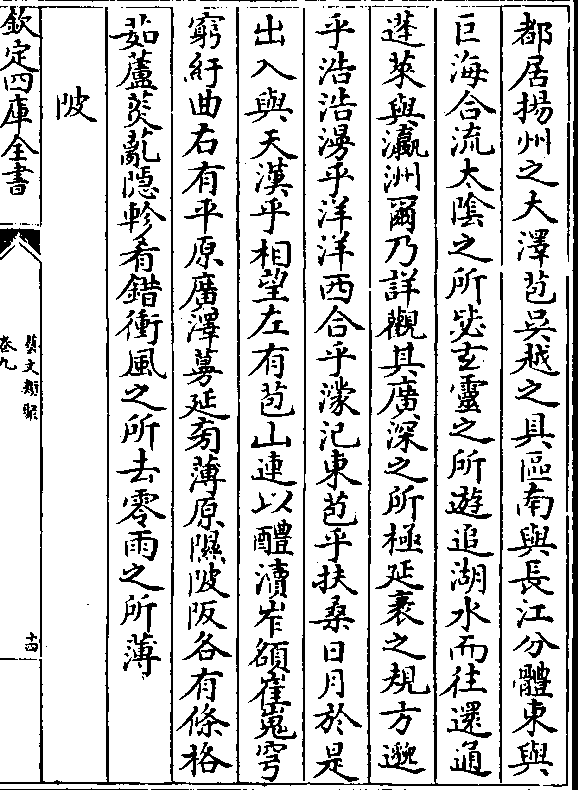 都居揚州之大澤苞吳越之具區南與長江分體東與
巨海合流太陰之所毖玄靈之所遊追湖水而往還通
蓬萊與瀛洲爾乃詳觀其廣深之所極延袤之規方邈
乎浩浩漫乎洋洋西合乎濛汜東苞乎扶桑日月於是
出入與天漢乎相望左有苞山連以醴瀆岝䫜崔嵬穹
窮紆曲右有平原廣澤蔓延旁薄原隰陂阪各有條格
茹蘆菼亂隱軫肴錯衝風之所去零雨之所薄
陂
欽定四庫全書
藝文類聚
卷九
十四